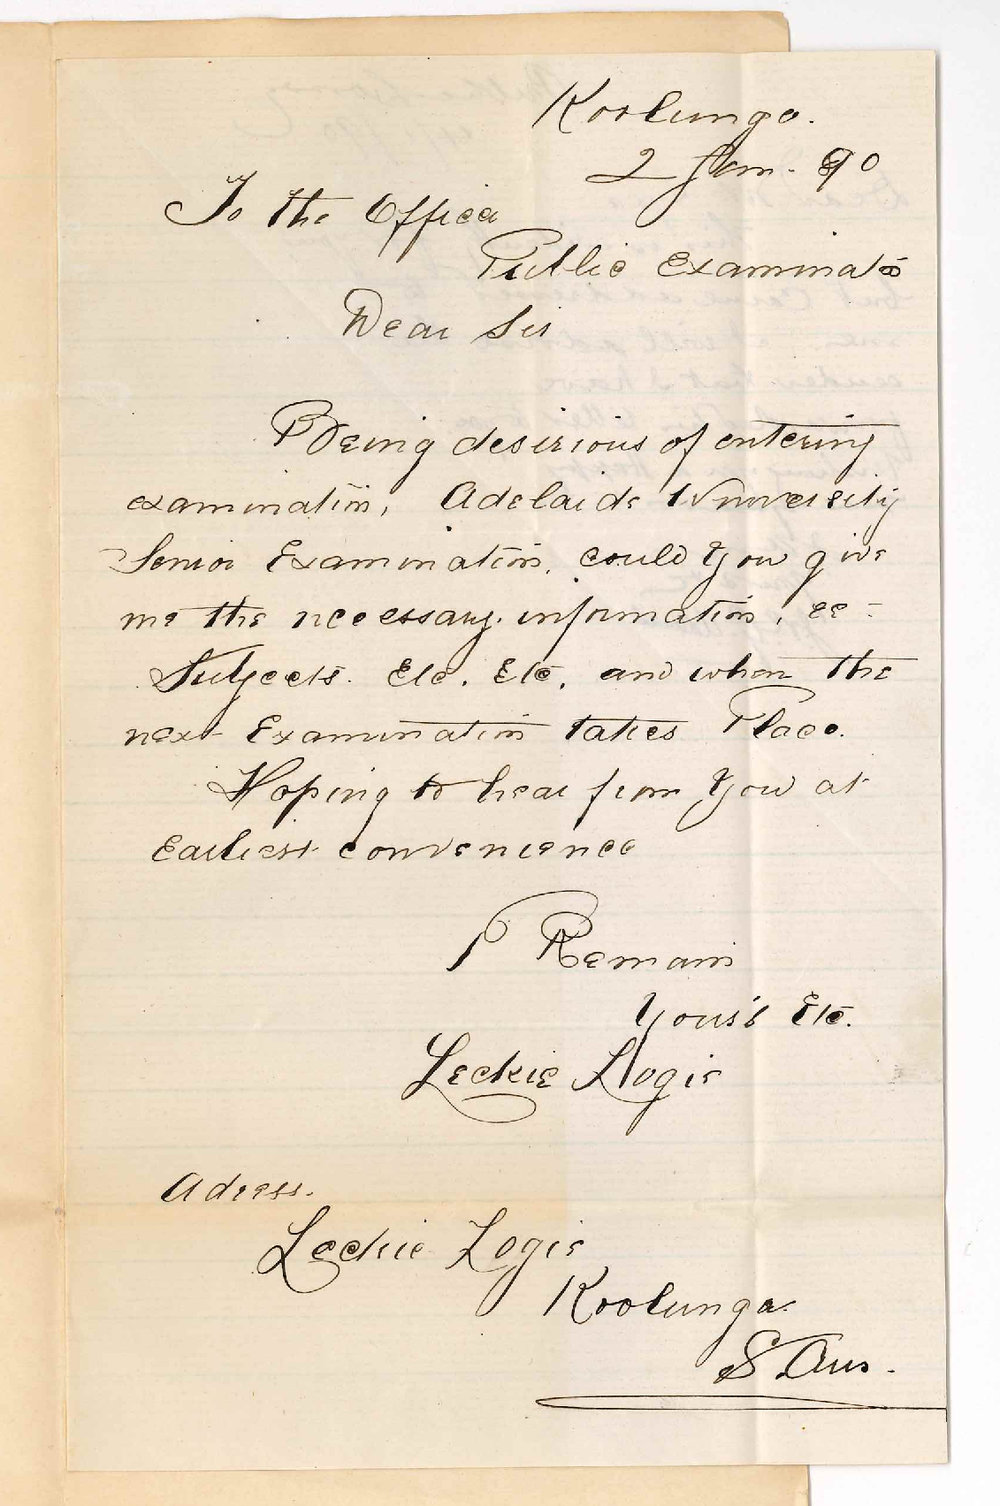 Koolunga.
2 Jan. 90
To the Officer
Public Examination
Dear Sir
Being desirious of entering
examination, Adelaide University
Senior Examination. could you give
me the necessary. information,
Subjects. Etc. Etc. and when the
next Examination takes Place.
Hoping to hear from you at
Earliest convenience
I Remain
Your's Etc.
Leckie Logie
Adress.
Leckie Logie
Koolunga
S. Aus.